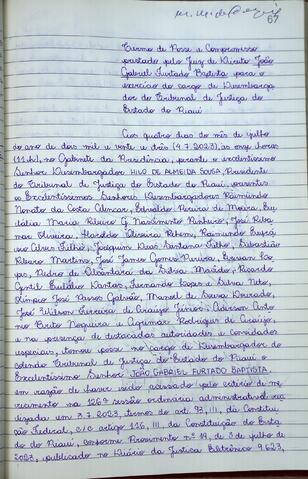 67
Termo de Posse e Compromisso
prestado pelo Juiz de Direito João
Gabriel Furtado Baptista para o
exercício do cargo de Desembarga-
dor do Tribunal de Justiça do
Estado do Piauí
Aos quatro dias do mês de julho
do ano de dois mil e vinte e três (4.7.2023), às onze horas
(11h), no Gabinete da Presidência, perante o excelentíssimo
Senhor Desembargador HILO DE ALMEIDA SOUSA, Presidente
do Tribunal de Justiça do Estado do Piauí, presentes
os Excelentíssimos Senhores Desembargadores Raimundo
Nonato da Costa Alencar, Edvaldo Pereira de Moura, Eu-
lália Maria Ribeiro G. Nascimento Pinheiro, José Riba-
mar Oliveira, Haroldo Oliveira Rehem, Raimundo Eufrá-
sio Alves Filho, Joaquim Dias Santana Filho, Sebastião
Ribeiro Martins, José James Gomes Pereira, Erivan Lo-
pes, Pedro de Alcântara da Silva Macêdo, Ricardo
Gentil Eulálio Dantas, Fernando Lopes e Silva Neto,
Olímpio José Passos Galvão, Manoel de Sousa Dourado,
José Wilson Ferreira de Araújo Júnior, Aderson Antô-
nio Brito Nogueira e Agrimar Rodrigues de Araújo,
e na presença de destacadas autoridades e convidados
especiais, tomou posse no cargo de Desembargador do
colendo Tribunal de Justiça do Estado do Piauí o
Excelentíssimo Senhor JOÃO GABRIEL FURTADO BAPTISTA,
em razão de haver sido acessado pelo critério de me-
recimento na 126ª sessão ordinária administrativa rea-
lizada em 3.7.2023, termos do art. 93, III, da Constitui-
ção Federal, c/c artigo 116, III, da Constituição do Esta-
do do Piauí, conforme Provimento nº 19, de 3 de julho de
2023, publicado no Diário da Justiça Eletrônico 9.623,